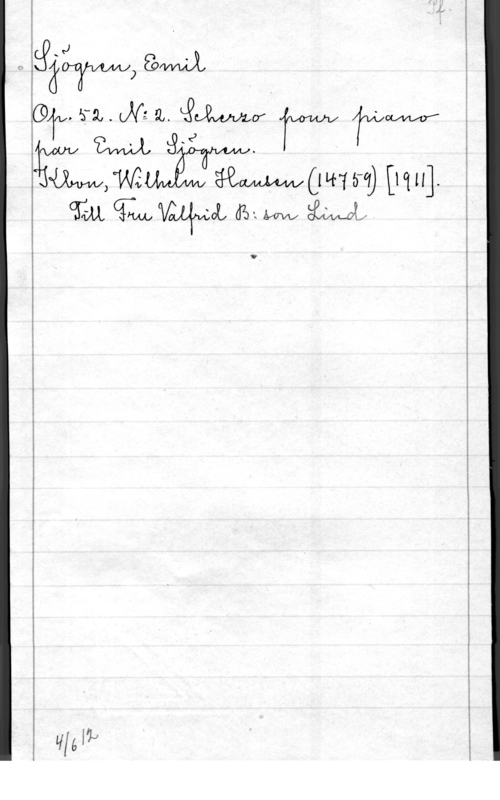 Pf.
Sjögren, Emil
Op. 52. N:o 2. Scherzo pour piano
par Emil Sjögren.
Kbvn, Wilhelm Hansen (14759) [1911].
Till Fru Valfrid B:son Lind
4/6 12